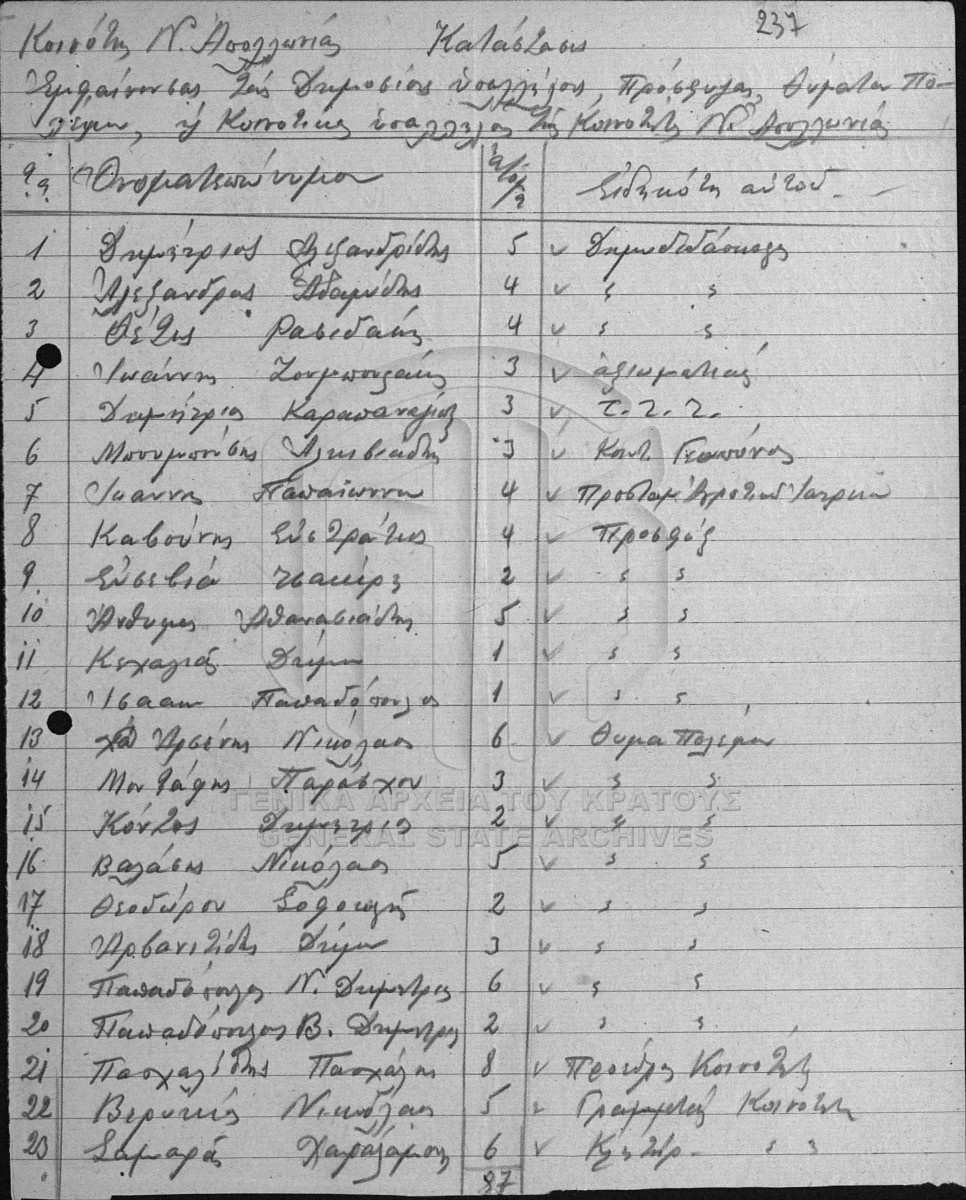 237
Κοινότης Ν. Ἀπολλωνίας Κατάστασις
Ἐμφαίνουσας τοὺς Δημοσίους ὑπαλλήλους, Πρόσφυγας, Θύματα Πο-
λέμου, ἢ Κοινοτικὰς ὑπαλλήλους τῆς Κοινότητος Ν. Ἀπολλωνίας
Ονοματεπώνυμον Εἰδηκότη αὐτοῦ
1 Δημήτριος Αλεξανδρίδης 5 Δημοδιδάσκαλος
2 Ἀλέξανδρος Ἀδαμίδης 4 " "
3 4 " "
4 Ἰωάννης 3 ἀξιωματικός
5 Δημήτριος Καραπαναγιώτ 3 Τ.Τ.Τ.
6 Ἀλκιβιάδης 3 Κοιντ Γεωπόνος
7 Ιωαννης Παπαϊωννου 4 Προσταμ Ἀγροτικοῦ Ἰατρείου
8 Καβούνης Εὐστράτιος 4 Προσφύξ
9 Εὐσεβιά τσακίρη 2 " "
10 Ἄνθιμος Ἀθανασιάδης 5 " "
11 Κεχαγιᾶς Δήμου 1 " "
12 Ἰσαακ Παπαδόπουλος 1 " "
13 Ἀρσένης Νικόλαος 6 Θυμα Πολέμου
14 Μουτάφης Παράσχου 3 " "
15 Κόντος Δημητριος 2 " "
16 Βαλάσης Νικόλαος 5 " "
17 Θεοδώρου Σοφοκλῆς 2 " "
18 Ἀρβανιτίδης Δήμου 3 " "
19 Παπαδόπουλος Ν. Δημητριος 6 " "
20 Παπαδόπουλος Β. Δημητριος 2 " "
21 Πασχαλίδης Πασχάλης 8 Προεδρος Κοινότητος
22 Νικόλαος 5 Γραμματεὺς Κοινοτητος
23 Σαμαρᾶς Χαράλαμπος 6 Κλητήρ " "
87
ΓΕΝΙΚΑ ΑΡΧΕΙΑ ΤΟΥ ΚΡΑΤΟΥΣ
GENERAL STATE ARCHIVES